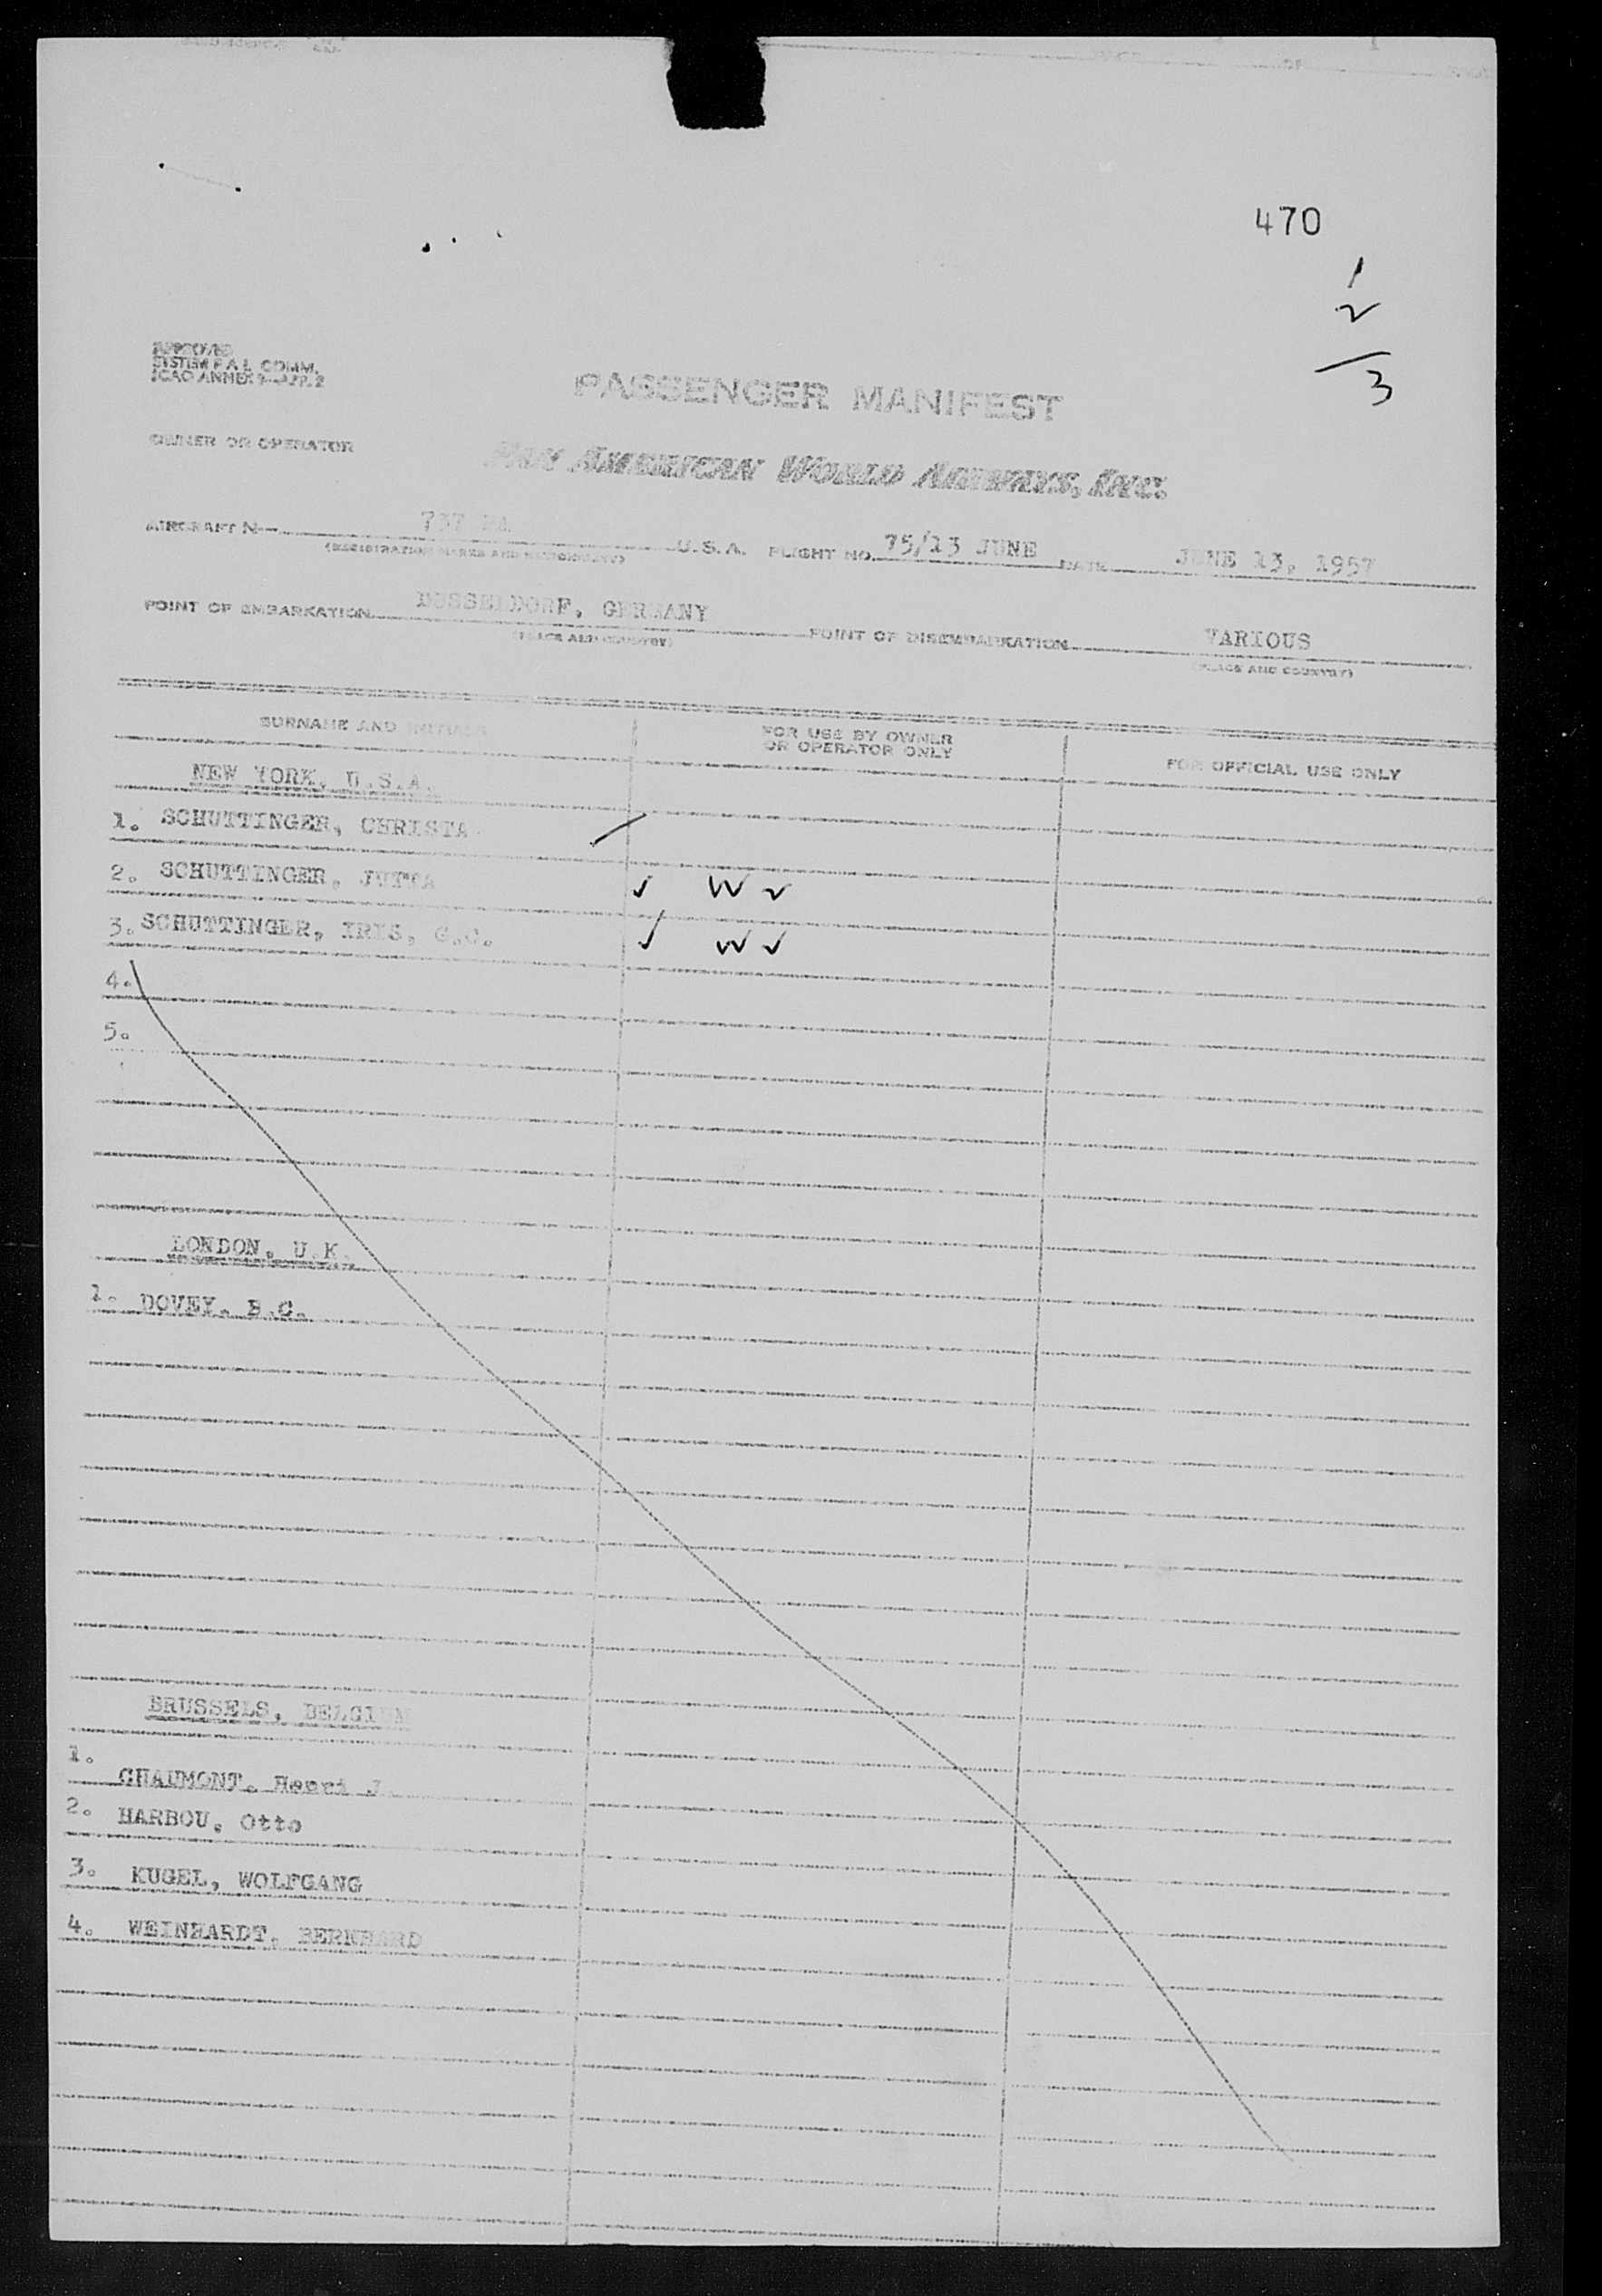 470
1
2
3
APPROVED
SYSTEM P.A.L. COMM.
ICAO ANNEX 9—APP. 2
PASSENGER MANIFEST
OWNER OR OPERATOR
PAN AMERICAN WORLD AIRWAYS, INC.
AIRCRAFT N— 737 PA U.S.A. FLIGHT NO. 75/13 JUNE DATE JUNE 13, 1957
(REGISTRATION MARKS AND NATIONALITY)
POINT OF EMBARKATION DUSSELDORF, GERMANY POINT OF DISEMBARKATION VARIOUS
(PLACE AND COUNTRY) (PLACE AND COUNTRY)
SURNAME AND INITIALS FOR USE BY OWNER OR OPERATOR ONLY FOR OFFICIAL USE ONLY
NEW YORK, U.S.A.
1. SCHUTTINGER, CHRISTA
2. SCHUTTINGER, JUTTA ✓ W ✓
3. SCHUTTINGER, IRIS, G.C. ✓ W ✓
4.
5.
LONDON, U.K.
1. DOVEY, B.C.
BRUSSELS, BELGIUM
1. CHAUMONT, Henri J.
2. HARBOU, Otto
3. KUGEL, WOLFGANG
4. WEINHARDT, BERNHARD